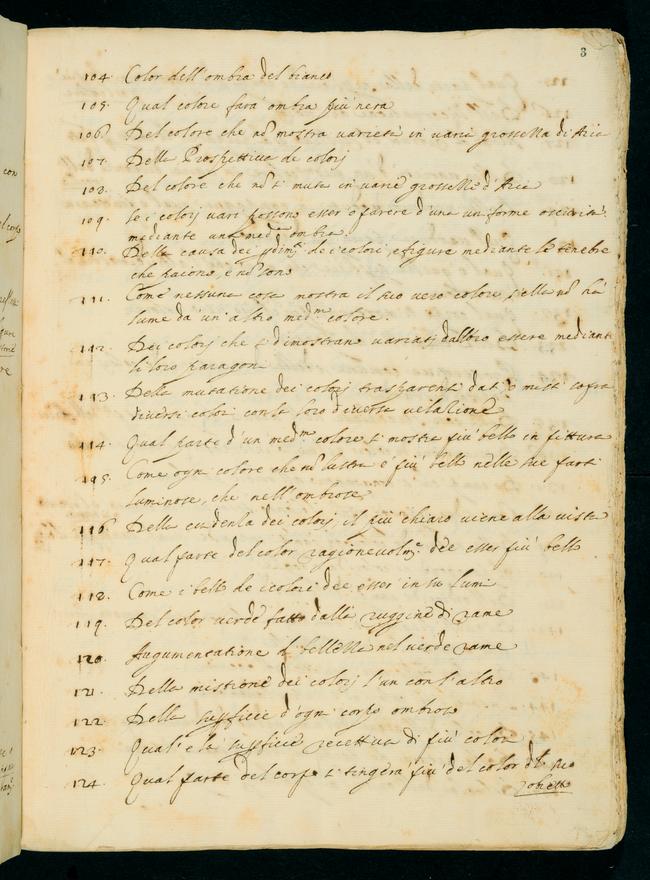 3
104. Color dell'ombra del bianco
105. Qual colore farà ombra più nera
106. Del colore che nõ mostra varietà in varie grossezza di Aria
107. Della Prospettiva de colorj
108. Del colore che nõ si muta in varie grossezze d'Aria
109. Se i colorj vari possono esser o parere d'una uniforme oscurità
mediante una med.ª ombra.
110. Della causa dei de i colori, e figure mediante le tenebre
che paiono, e nõ sono
111. Come nessuna cosa mostra il suo vero colore, s'ella nõ hà
lume da un'altro med.mo colore.
112. Dei colorj che si dimostran variati dall'loro essere mediante
li loro paragoni
113. Della mutatione dei colorj trasparenti dati ò misti sopra
diversi colori con la loro diversa velazione
114. Qual parte d'un med.mo colore si mostra più bello in pittura
115. Come ogni colore che nõ lustra è più bello nelle sue parti
luminose, che nell'ombrose
116. Della evidenza dei colorj, il più chiaro viene alla vista
117. Qual parte del color ragionevolm.te dee esser più bello
118. Come i bello de i colori dee esser in su lumi
119. Del color verde fatto dalla ruggine di rame
120. Augumentatione di bellezza nel verde rame
121. Della mistione dei colorj l'un con l'altro
122. Della suṗficie d'ogni corpo ombroso
123. Qual'è la suṗficie recettiva di più colori
124. Qual parte del corpo si tingerà più del color del suo
obietto